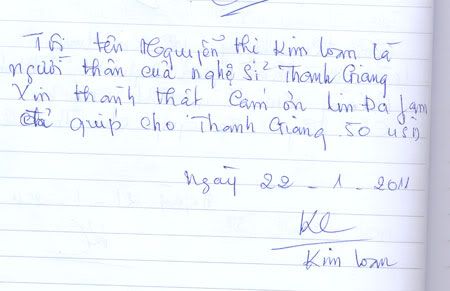 Tôi tên Nguyễn thị Kim Loan là
người thân của nghệ sĩ Thanh Giang
Xin thành thật cảm ơn Lin Da Lam
đã giúp cho Thanh Giang 50 USD
ngày 22 - 1 - 2011
KL
Kim Loan